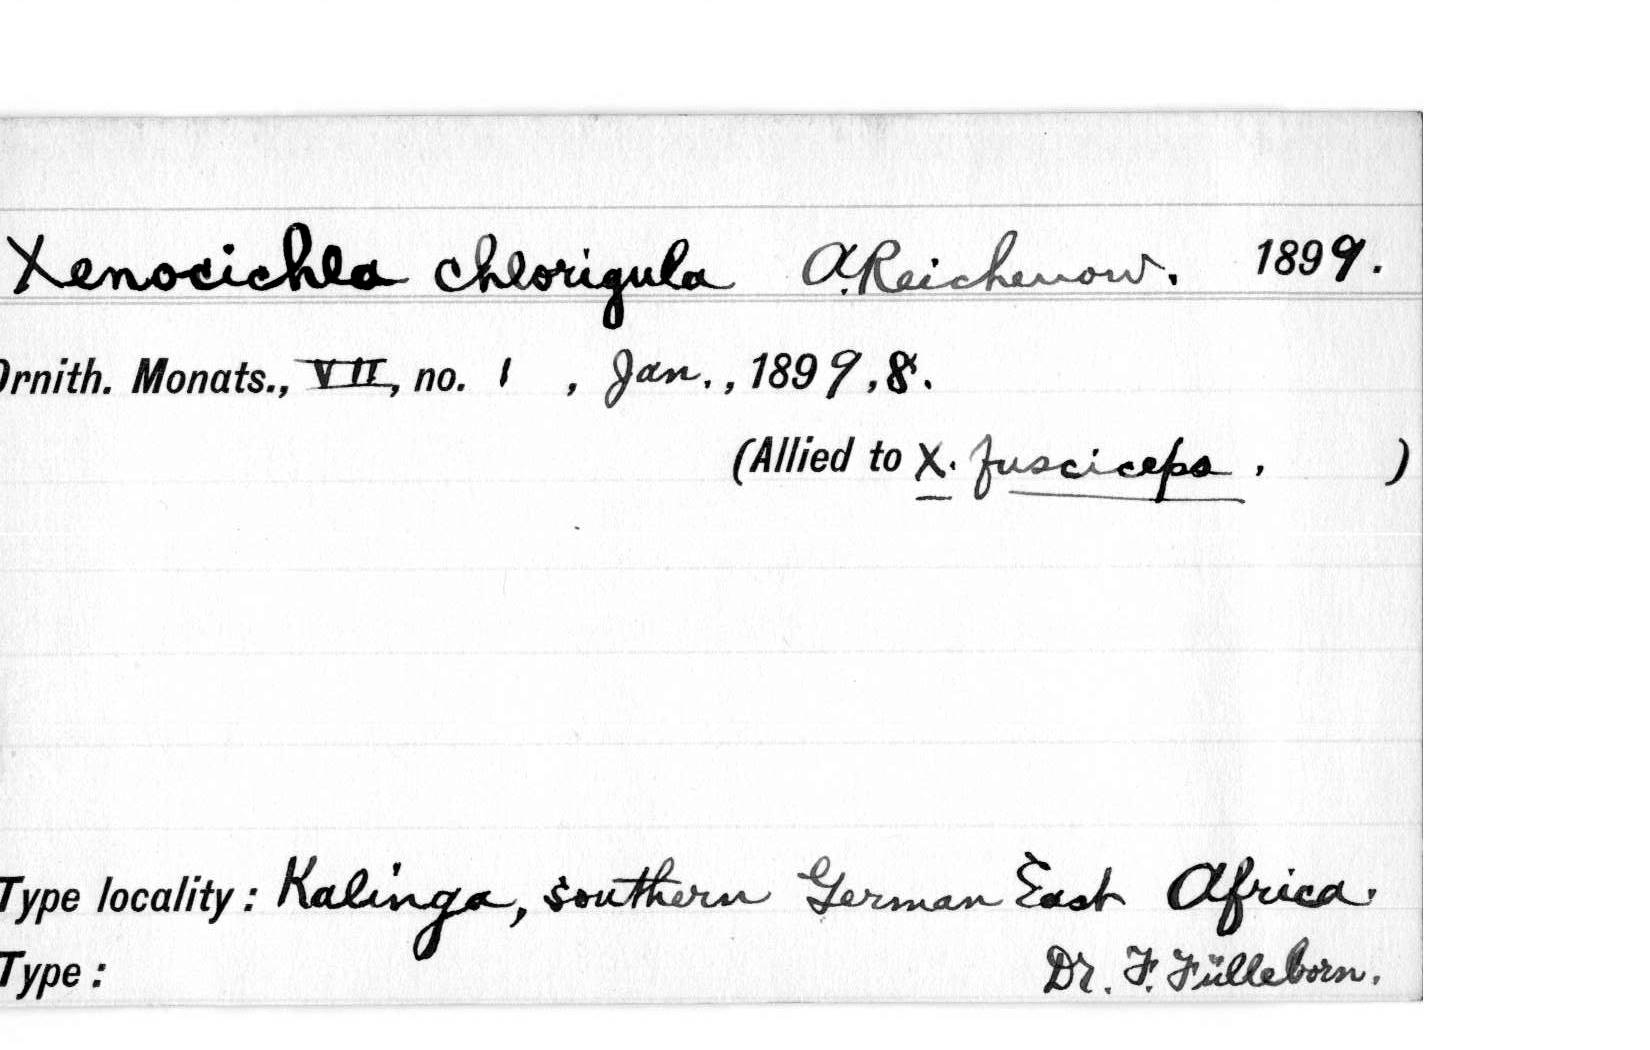 Xenocichla chlorigula A. Reichenow. 1899.
Ornith. Monats., VII, no. 1 , Jan., 1899, 8.
(Allied to X. fusciceps. )
Type locality: Kalinga, southern German East Africa.
Type: Dr. F. Fülleborn.